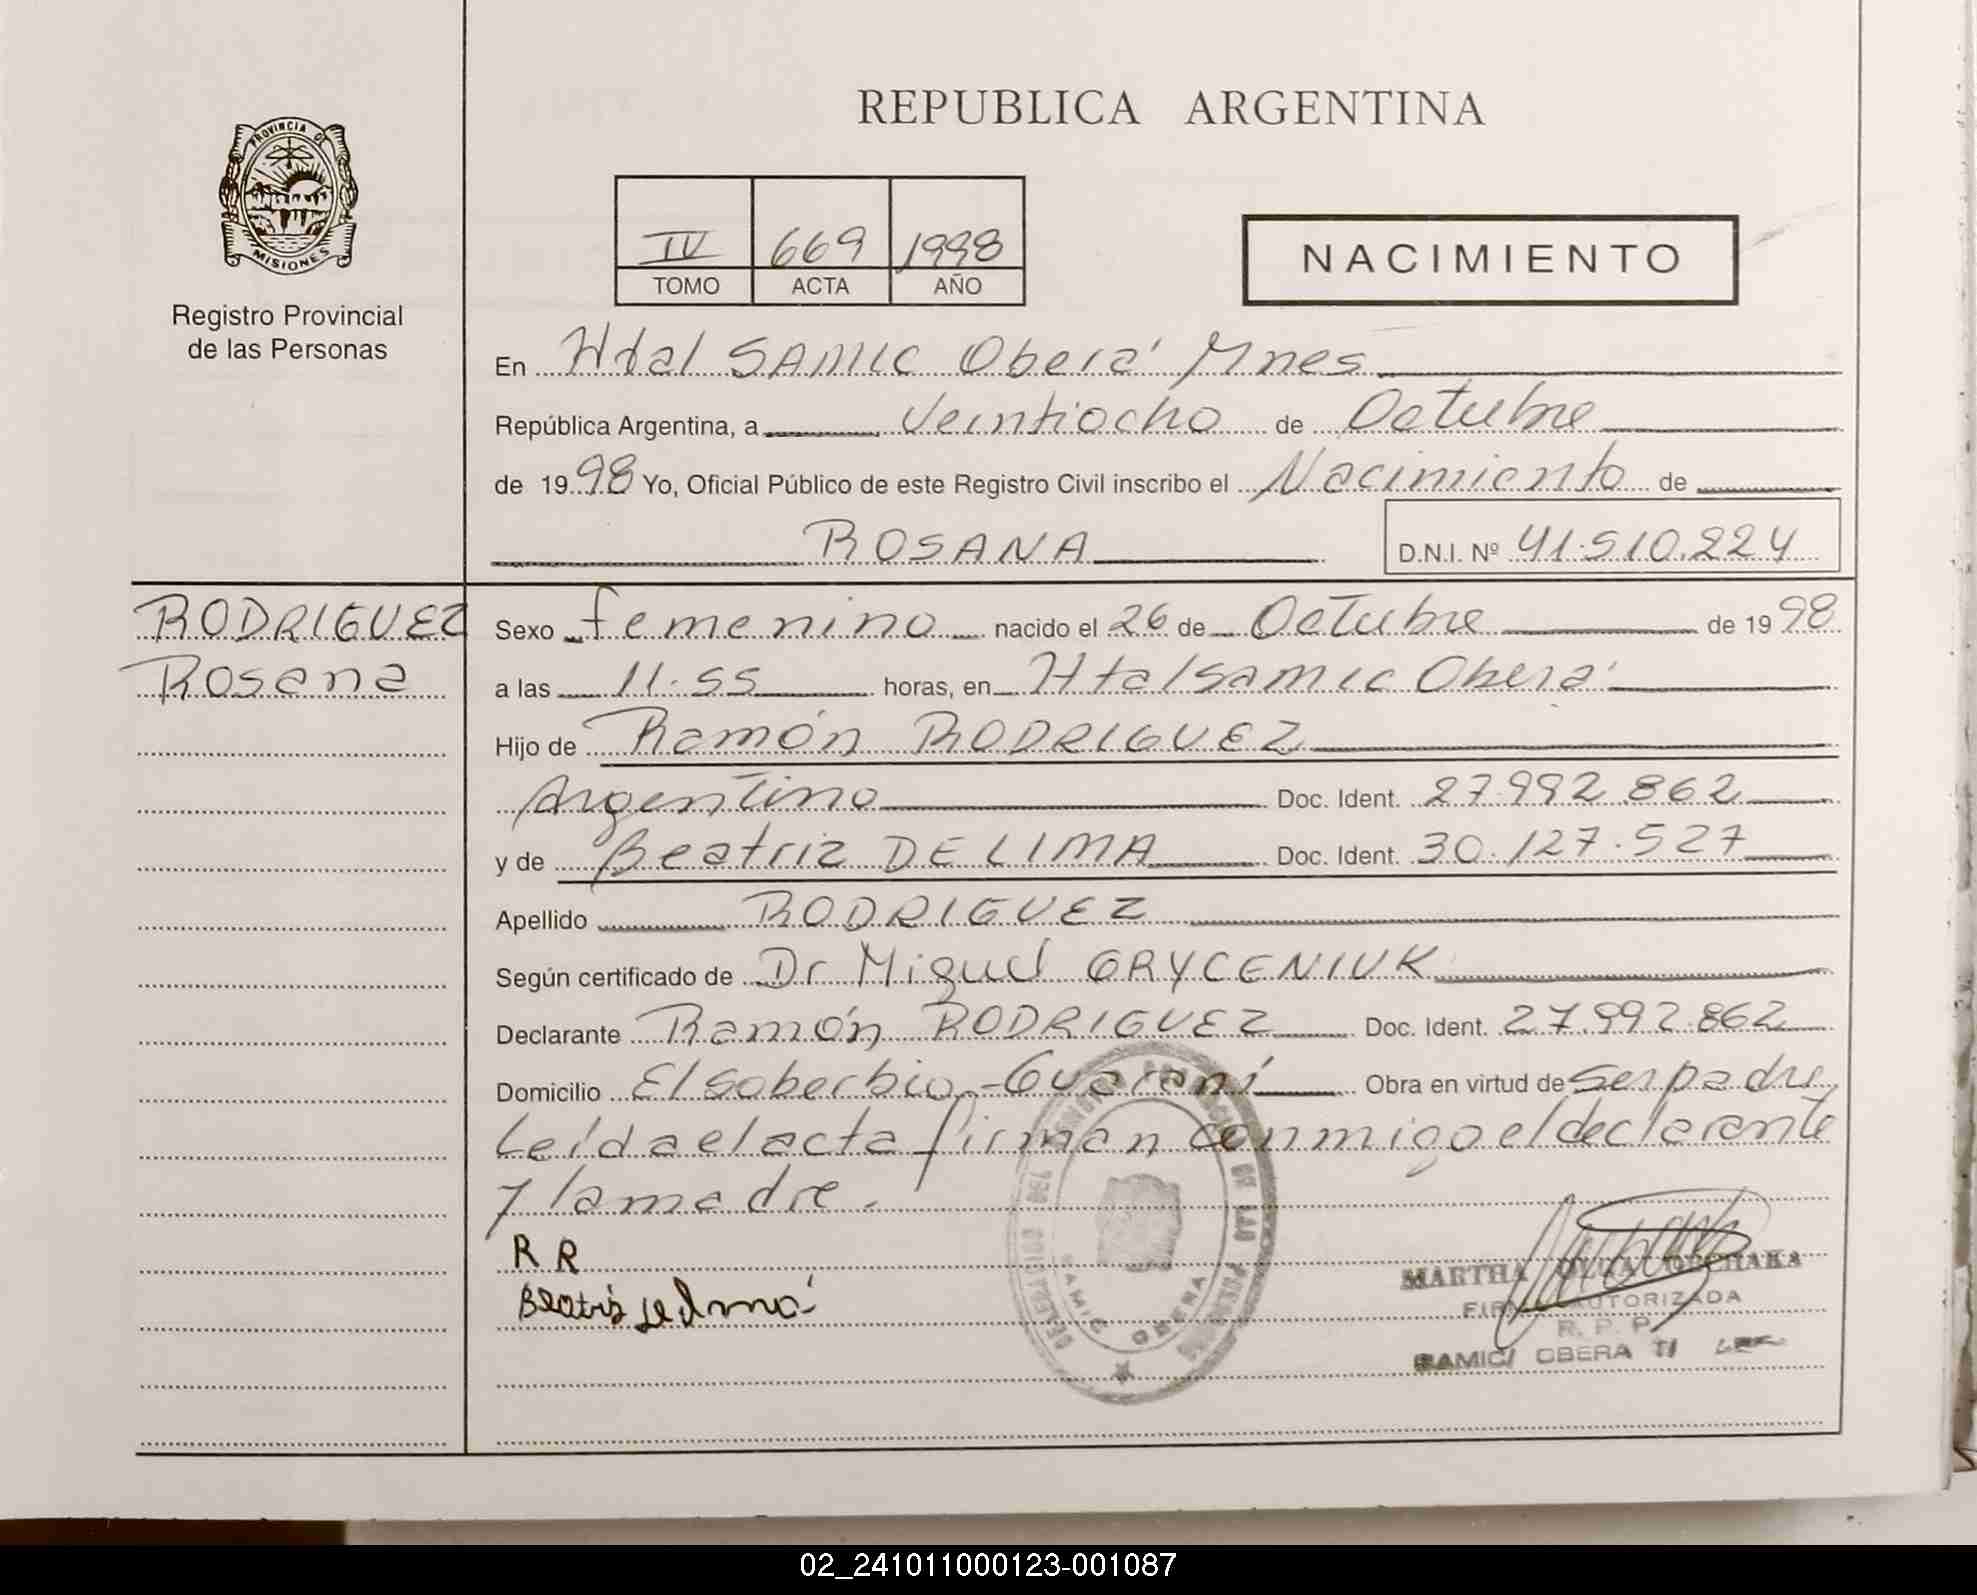 REPUBLICA ARGENTINA
PROVINCIA DE
MISIONES
Registro Provincial
de las Personas
IV 669 1998
TOMO ACTA AÑO
NACIMIENTO
En Htal SAMIC Oberá Mnes
República Argentina, a Veintiocho de Octubre
de 1998 Yo, Oficial Público de este Registro Civil inscribo el Nacimiento de
ROSANA D.N.I. Nº 41.510.224
RODRIGUEZ
Rosana
Sexo femenino nacido el 26 de Octubre de 1998
a las 11.55 horas, en Htal samic Oberá
Hijo de Ramón RODRIGUEZ
Argentino Doc. Ident. 27.992.862
y de Beatriz DE LIMA Doc. Ident. 30.127.527
Apellido RODRIGUEZ
Según certificado de Dr Miguel GRYCENIUK
Declarante Ramón RODRIGUEZ Doc. Ident. 27.992.862
Domicilio El soberbio-Guaraní Obra en virtud de ser padre
Leída el acta firman conmigo el declarante
y la madre.
R R
Beatris
DEL REGISTRO PROVINCIAL DE LAS PERSONAS
SAMIC OBERA
MARTHA OLGA
FIRMA AUTORIZADA
R. P. P.
SAMIC/ OBERA
02_241011000123-001087